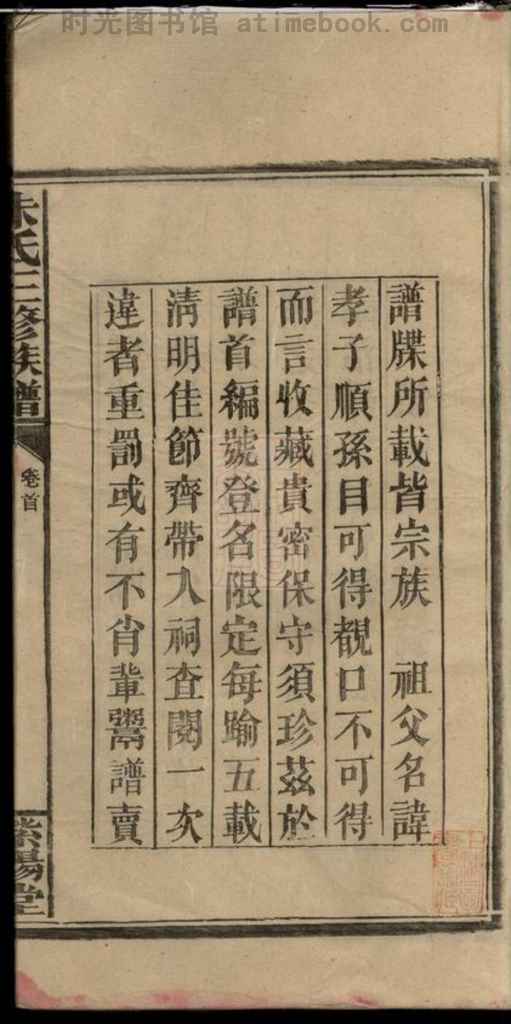 时光图书馆 atimebook.com
譜牒所載皆宗族　祖父名諱
孝子順孫目可得覩口不可得
而言收藏貴密保守須珍茲於
譜首編號登名限定每踰五載
清明佳節齊帶入祠查閱一次
違者重罰或有不肖輩鬻譜賣
朱氏三修族譜
卷首
紫陽堂